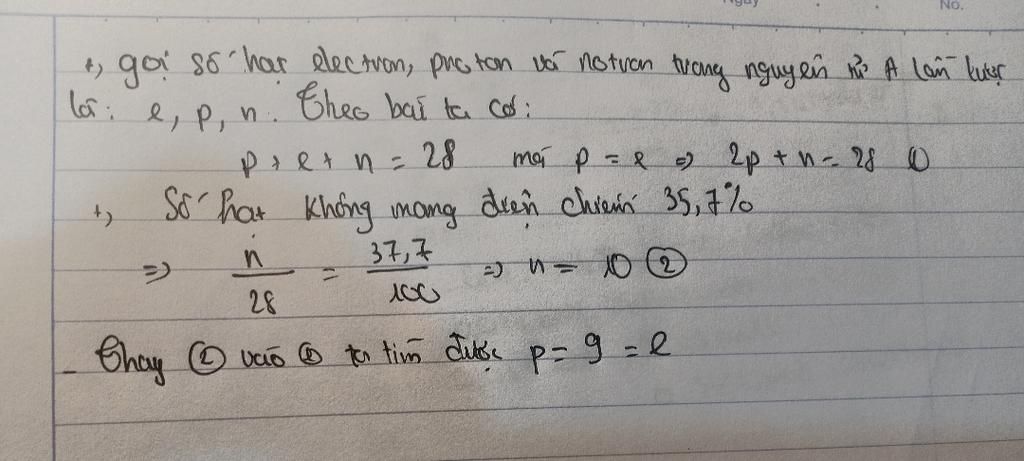 Ngày No.
+, gọi số hạt electron, proton và notron trong nguyên tử A lần lượt
là: e, p, n. Theo bài ta có:
p + e + n = 28 mà p = e => 2p + n = 28 ①
+, Số hạt không mang điện chiếm 35,7%
=> n/28 = 37,7/100 => n = 10 ②
- Thay ② vào ① ta tìm được p = 9 = e